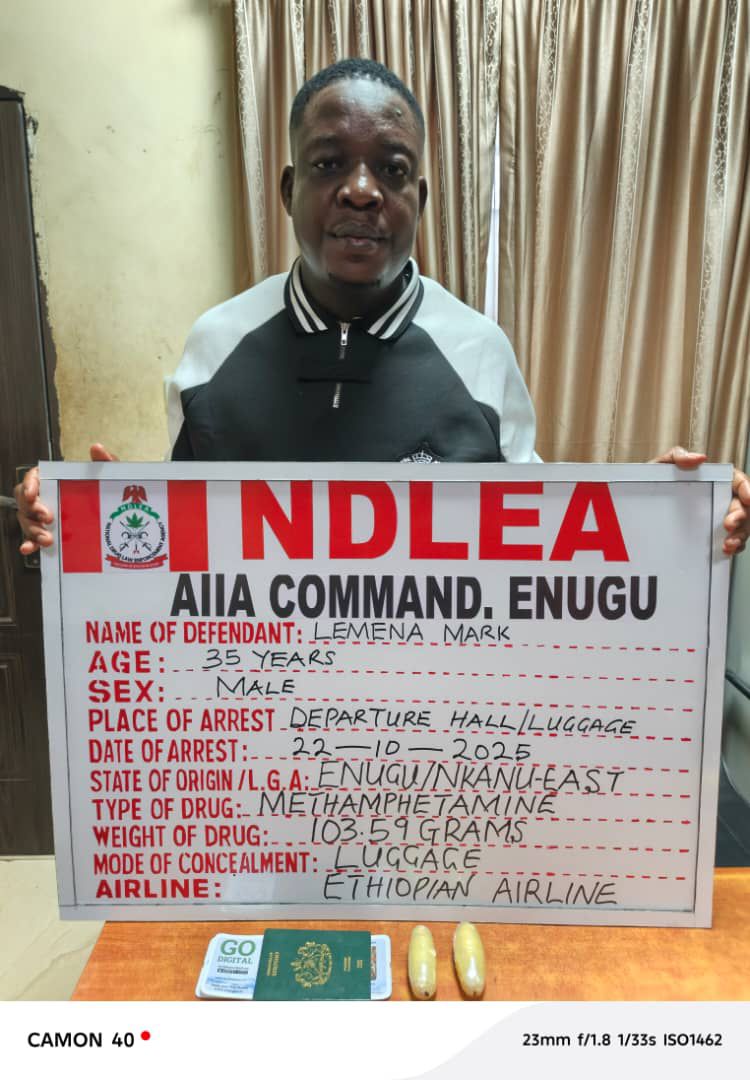 NDLEA
NDLEA
NATIONAL DRUG LAW ENFORCEMENT AGENCY
AIIA COMMAND. ENUGU
NAME OF DEFENDANT: LEMENA MARK
AGE: 35 YEARS
SEX: MALE
PLACE OF ARREST DEPARTURE HALL/LUGGAGE
DATE OF ARREST: 22-10-2025
STATE OF ORIGIN/L.G.A: ENUGU/NKANU-EAST
TYPE OF DRUG: METHAMPHETAMINE
WEIGHT OF DRUG: 103.59 GRAMS
MODE OF CONCEALMENT: LUGGAGE
AIRLINE: ETHIOPIAN AIRLINE
GO
DIGITAL
CAMON 40
23mm f/1.8 1/33s ISO1462